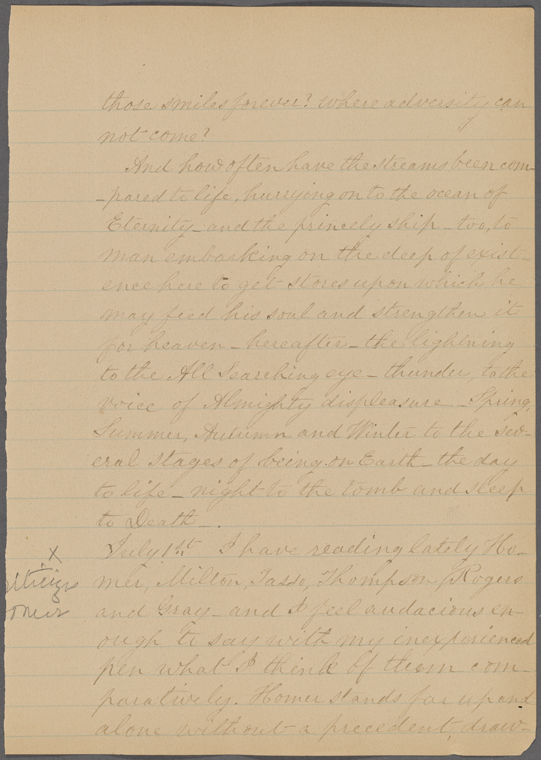 those smiles forever? Where adversity can
not come?
And how often have the streams been com-
-pared to life, hurrying on to the ocean of
Eternity - and the princely ship - too, to
man embarking on the deep of exist-
ence here to get stores upon which he
may feed his soul and strengthen it
for heaven - hereafter - the lightning
to the All Searching eye - thunder, to the
voice of Almighty displeasure - Spring,
Summer, Autumn and Winter to the sev-
eral stages of being on Earth - the day
to life - night to the tomb and sleep
to Death - .
x
July 1st I have reading lately Ho-
mer, Milton, Tasso, Thompson, Rogers
and Gray - and I feel audacious en-
ough to say with my inexperienced
pen what I think of them com-
paratively. Homer stands far up and
alone without a precedent, draw-